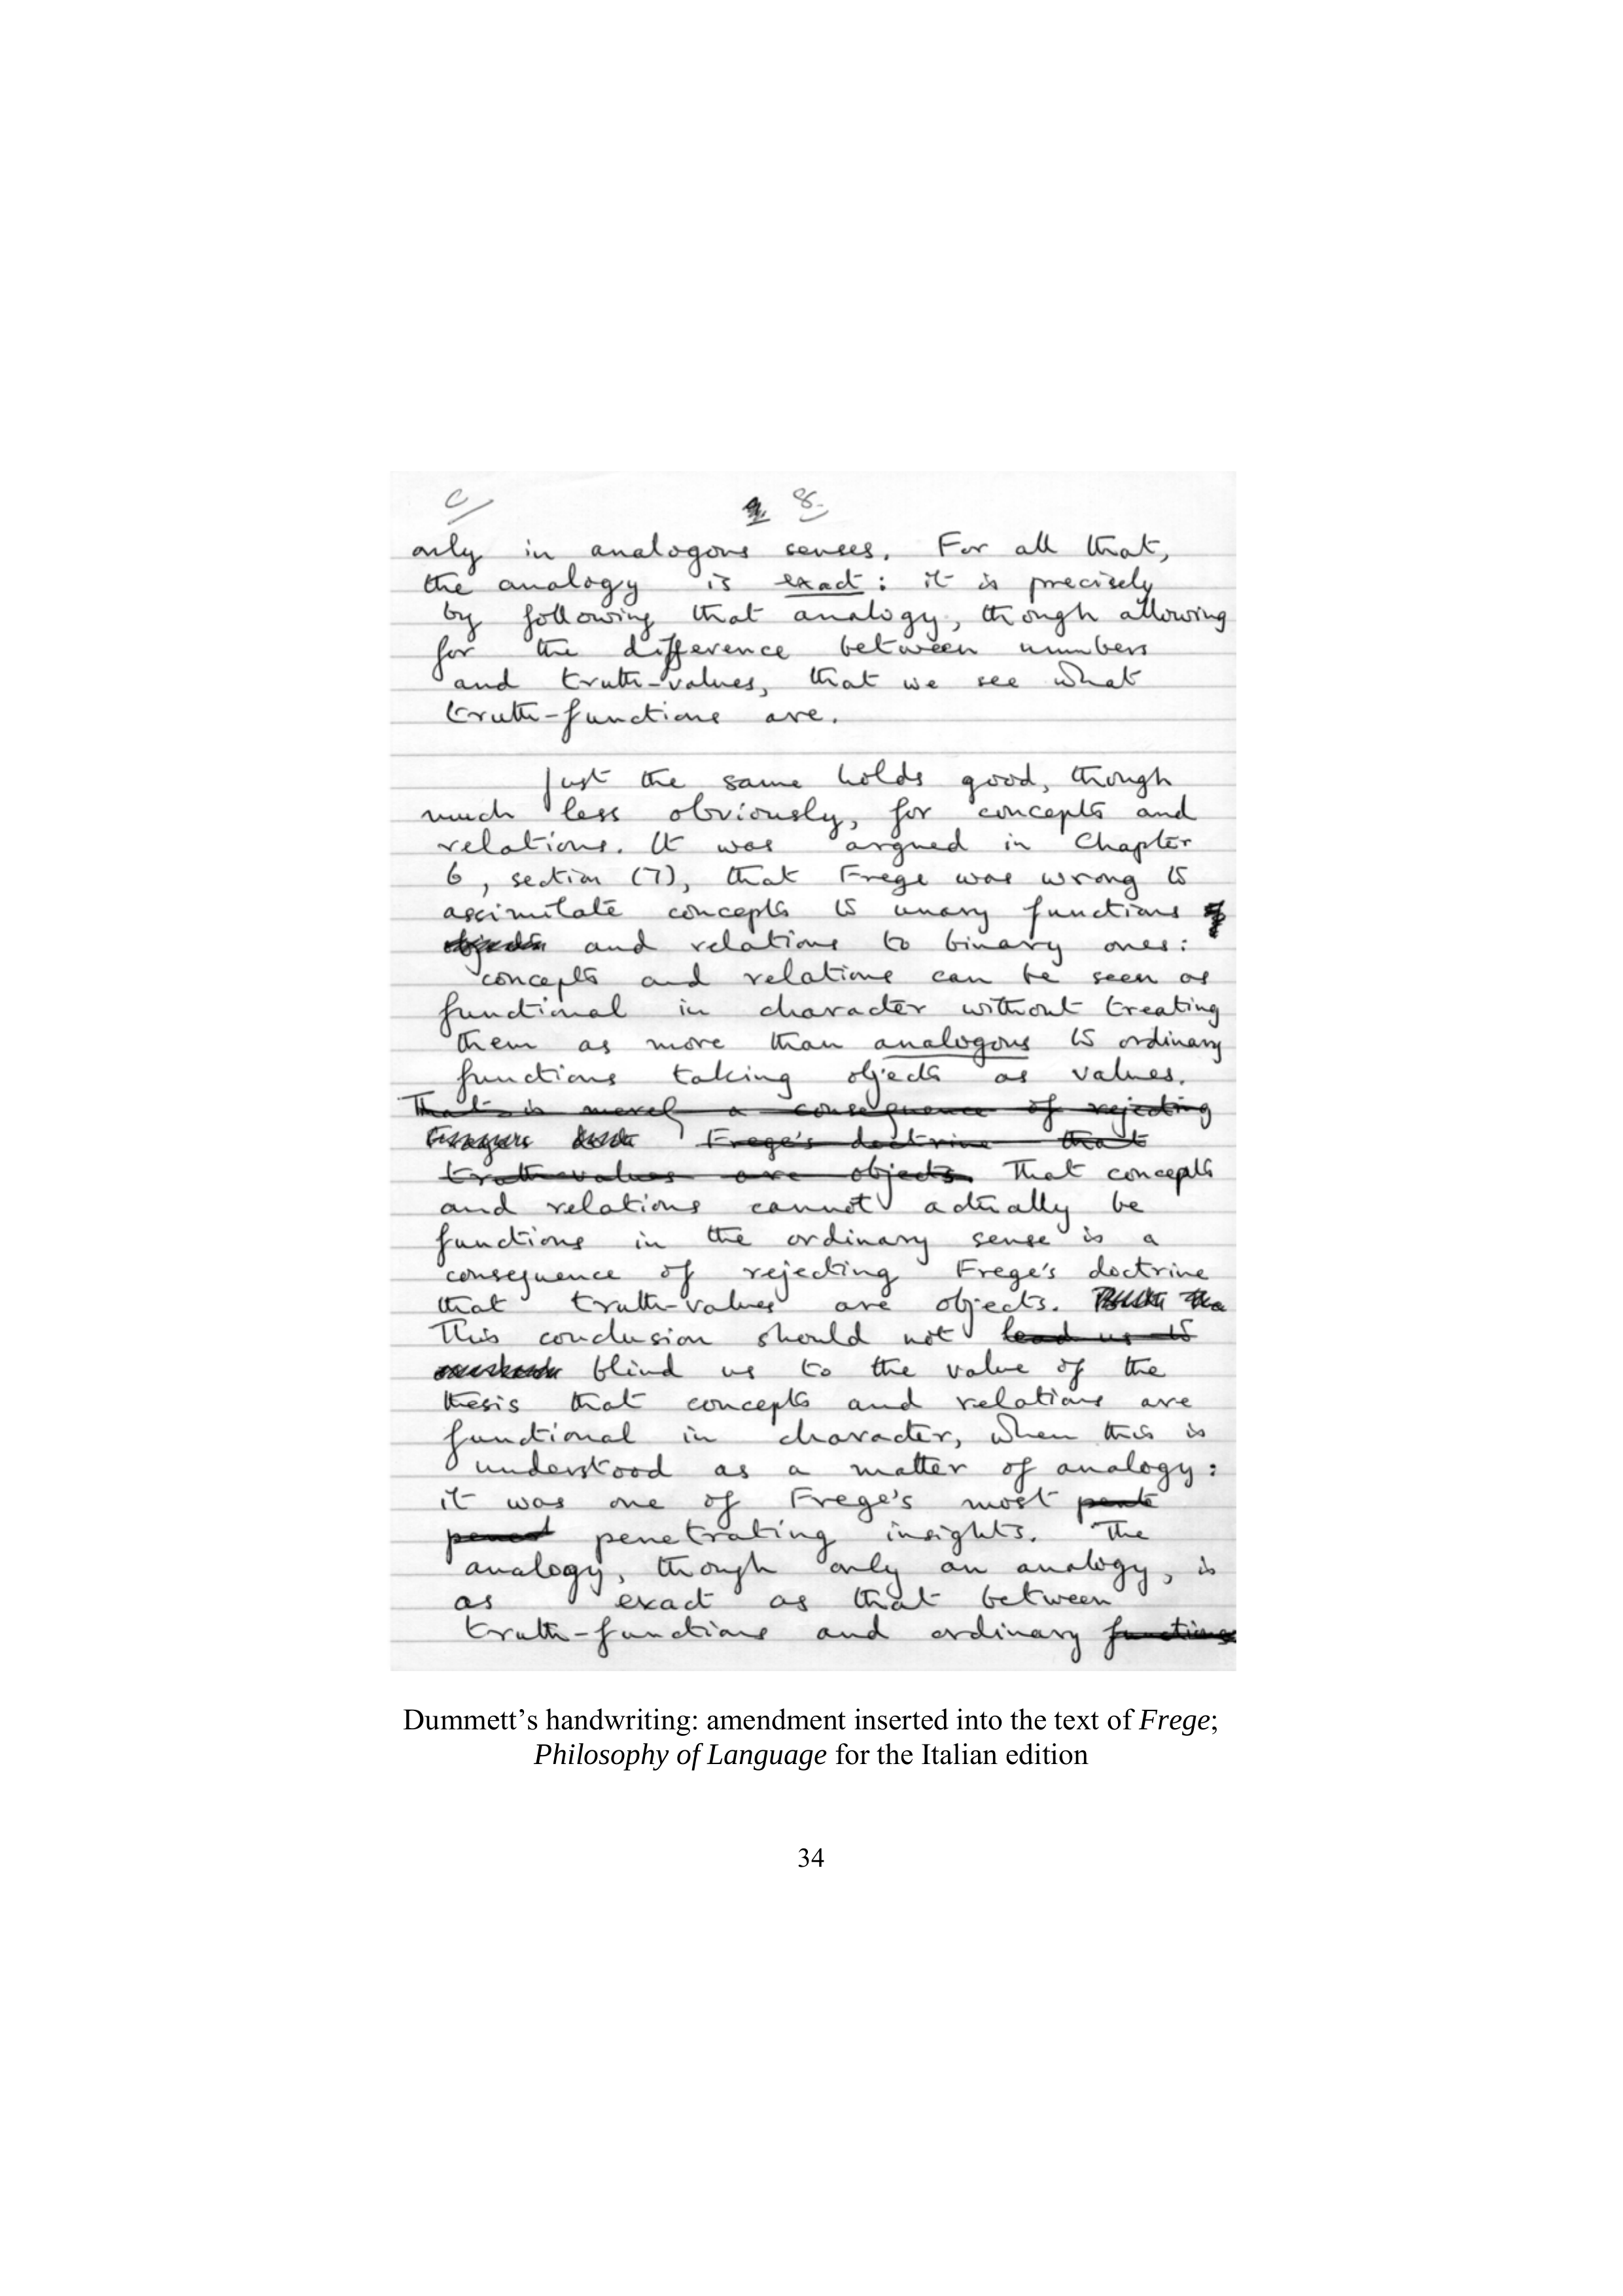 c/ 8.
only in analogous senses. For all that,
the analogy is exact: it is precisely
by following that analogy, though allowing
for the difference between numbers
and truth-values, that we see what
truth-functions are.
Just the same holds good, though
much less obviously, for concepts and
relations. It was argued in Chapter
6, section (7), that Frege was wrong to
assimilate concepts to unary functions
and relations to binary ones:
concepts and relations can be seen as
functional in character without treating
them as more than analogous to ordinary
functions taking objects as values.
That is merely a consequence of rejecting
Frege's doctrine that
truth-values are objects. That concepts
and relations cannot actually be
functions in the ordinary sense is a
consequence of rejecting Frege's doctrine
that truth-values are objects.
This conclusion should not lead us to
blind us to the value of the
thesis that concepts and relations are
functional in character, when this is
understood as a matter of analogy:
it was one of Frege's most
penetrating insights. The
analogy, though only an analogy, is
as exact as that between
truth-functions and ordinary functions
Dummett’s handwriting: amendment inserted into the text of Frege;
Philosophy of Language for the Italian edition
34